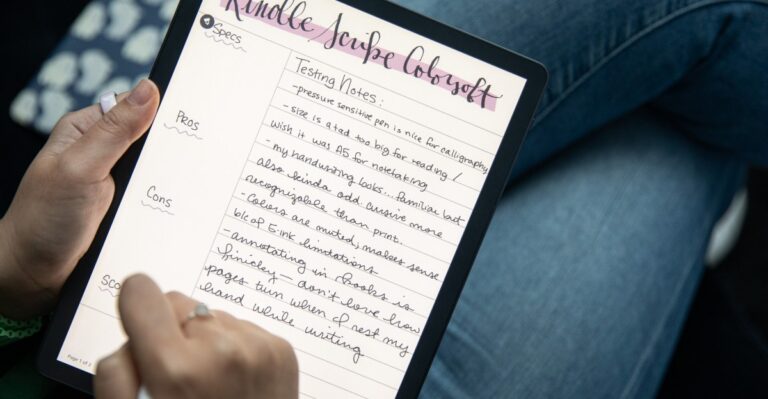 Kindle Scribe Colorsoft
Specs
Pros
Cons
Sco
Testing Notes:
-pressure sensitive pen is nice for calligraphy
- size is a tad too big for reading /
wish it was A5 for notetaking
- my handwriting looks... familiar but
also kinda odd cursive more
recognizable than print.
- Colors are muted, makes sense
b/c of E-ink limitations
- annotating in books is
finicky - don't love how
pages turn when I rest my
hand while writing
Page 1 of 2